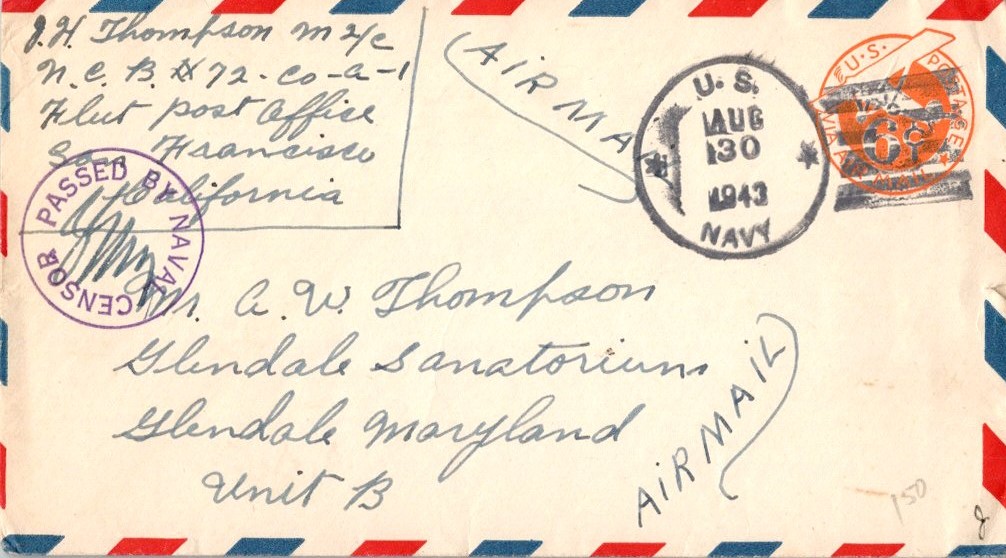 J. H. Thompson M 2/c
N. C. B. # 72 - Co - A - 1
Fleet Post Office
San Francisco
California
PASSED BY NAVAL CENSOR
AIR MAIL
U. S.
AUG
30
1943
NAVY
U.S. POSTAGE
6¢
VIA AIR MAIL
Mr. A. W. Thompson
Glendale Sanatorium
Glendale Maryland
Unit B
AIR MAIL
150